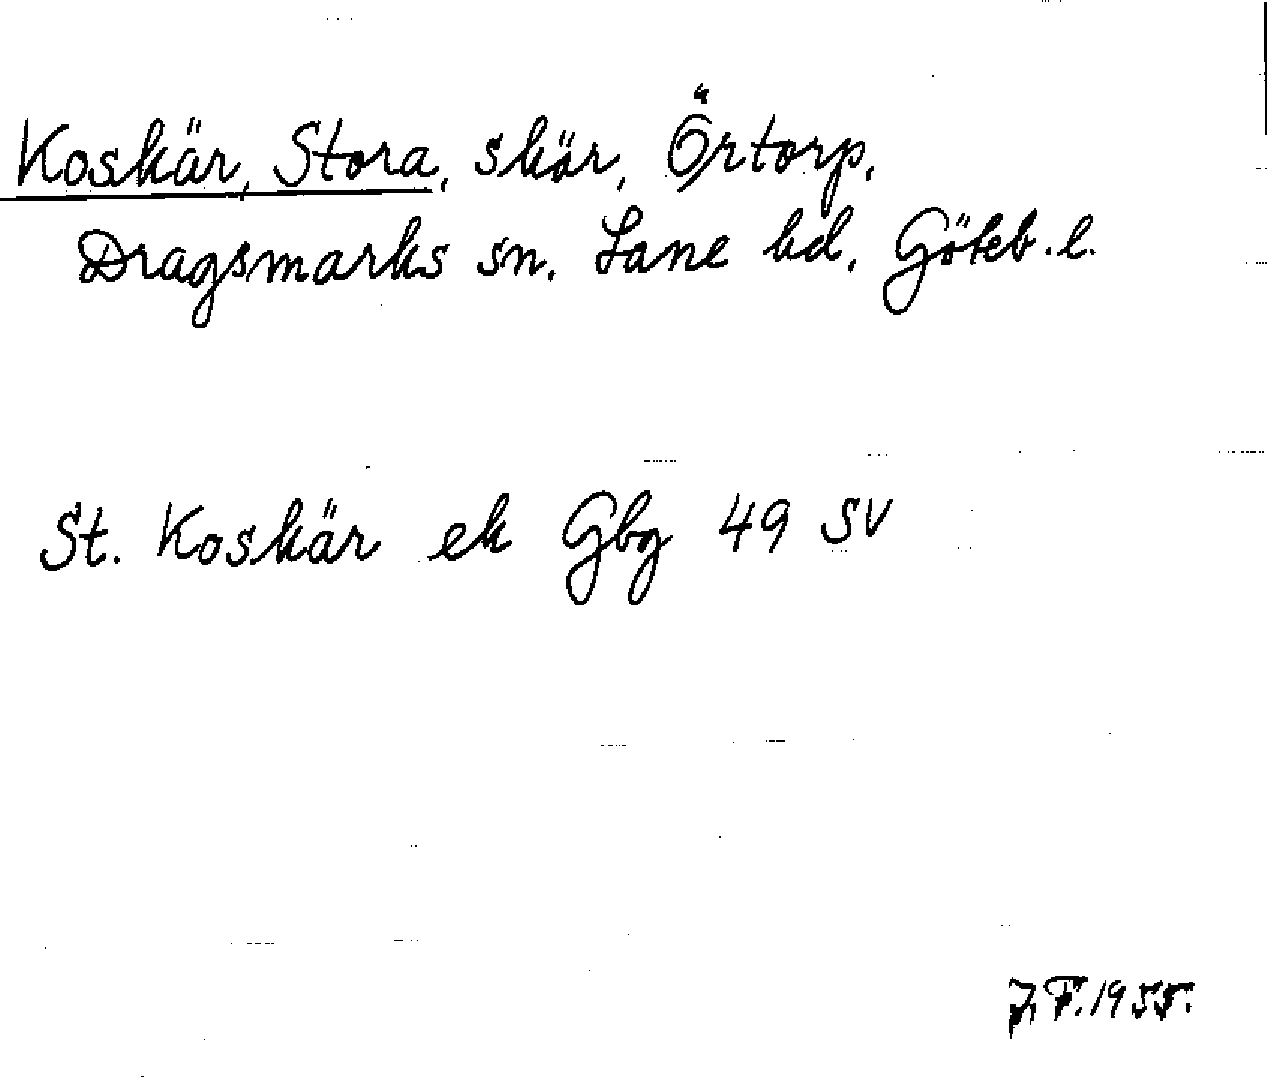 Koskär, Stora, skär, Örtorp,
Dragsmarks sn. Lane hd. Göteb. l.
St. Koskär ek Gbg 49 SV
J.F. 1955.